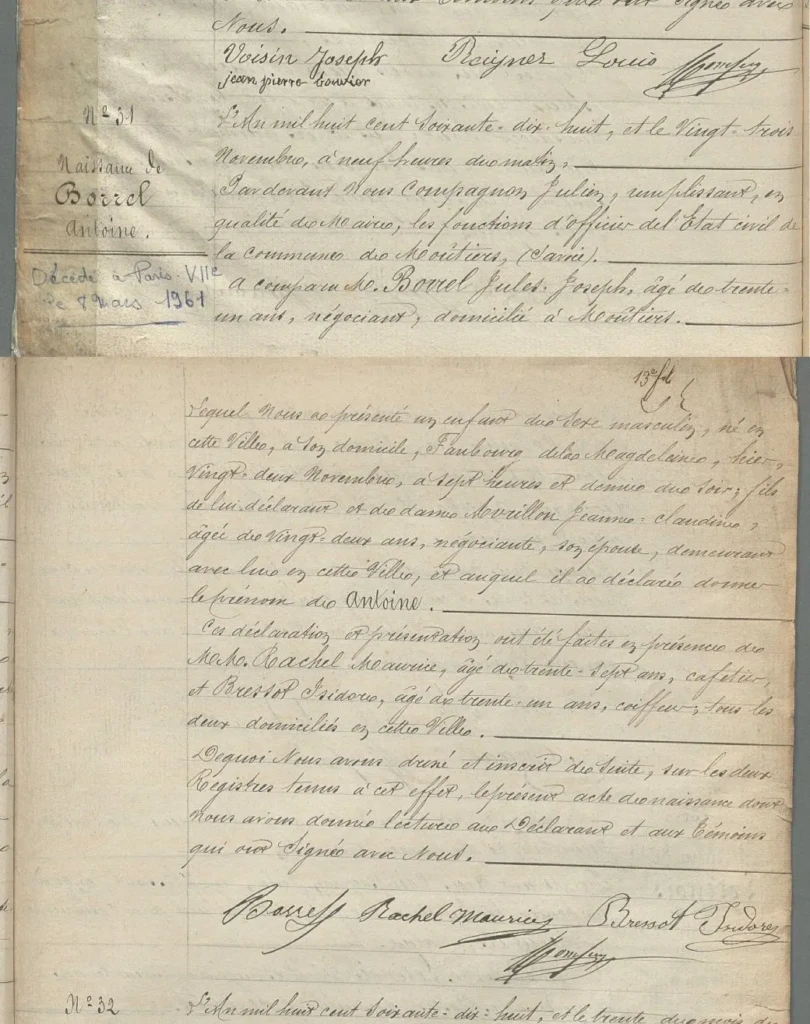 Nous.
Voisin Joseph Reignez Louis Compagnon
jean pierre bouvier
Nº 31
Naissance de
Borrel
Antoine.
Décédé à Paris-VIIe
le 8 Mars 1961
L'An mil huit cent Soixante-dix-huit, et le Vingt-trois
Novembre, à neuf heures du matin,
Pardevant Nous Compagnon Julien, remplissant, en
qualité de Maire, les fonctions d'officier de l'Etat civil de
la commune de Moûtiers, (Savoie).
a comparu M. Borrel Jules-Joseph, âgé de trente-
un ans, négociant, domicilié à Moûtiers.
13e ft
Lequel Nous a présenté un enfant du Sexe masculin, né en
cette Ville, à son domicile, Faubourg de la Magdeleine, hier,
Vingt-deux Novembre, à Sept heures et demie du Soir; fils
de lui déclarant et de dame Avrillon Jeanne-claudine,
âgée de Vingt-deux ans, négociante, son épouse, demeurant
avec lui en cette Ville, et auquel il a déclaré donner
le prénom de Antoine.
Ces déclaration et présentation ont été faites en présence de
MM. Rachel Maurice, âgé de trente-Sept ans, cafetier,
et Bressot Isidore, âgé de trente-un ans, coiffeur; tous les
deux domiciliés en cette Ville.
De quoi Nous avons dressé et inscrit de Suite, sur les deux
Registres tenus à cet effet, le présent acte de naissance dont
Nous avons donné lecture au Déclarant et aux Témoins
qui ont Signé avec Nous.
Borrel Rachel Maurice Bressot Isidore
Compagnon
Nº 32
L'An mil huit cent Soixante-dix-huit, et le trente du mois de